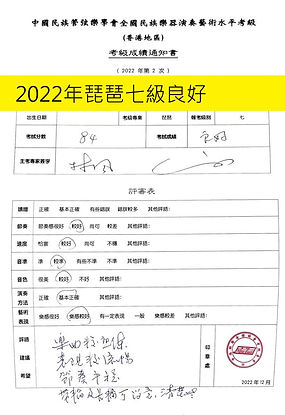 中國民族管弦樂學會全國民族樂器演奏藝術水平考級
(香港地區)
考級成績通知書
( 2022 年第 2 次 )
2022年琵琶七級良好
出生日期 考級專業 琵琶 報考級別 七
考試分數 84 考試成績 良好
主考專家簽字
評審表
譜面 正確 基本正確 有些錯誤 錯誤較多 其他評語:
節奏 節奏感很好 較好 尚可 較差 其他評語:
速度 恰當 較好 尚可 不穩 其他評語:
音準 準 較準 有些不準 不準 其他評語:
音色 很美 較好 不好 其他評語:
演奏方法 正確 基本正確 其他評語:
藝術表現 樂感很好 樂感較好 有一定表現 一般 樂感較差 其他評語:
評語
建議
希望
印章處
2022年12月